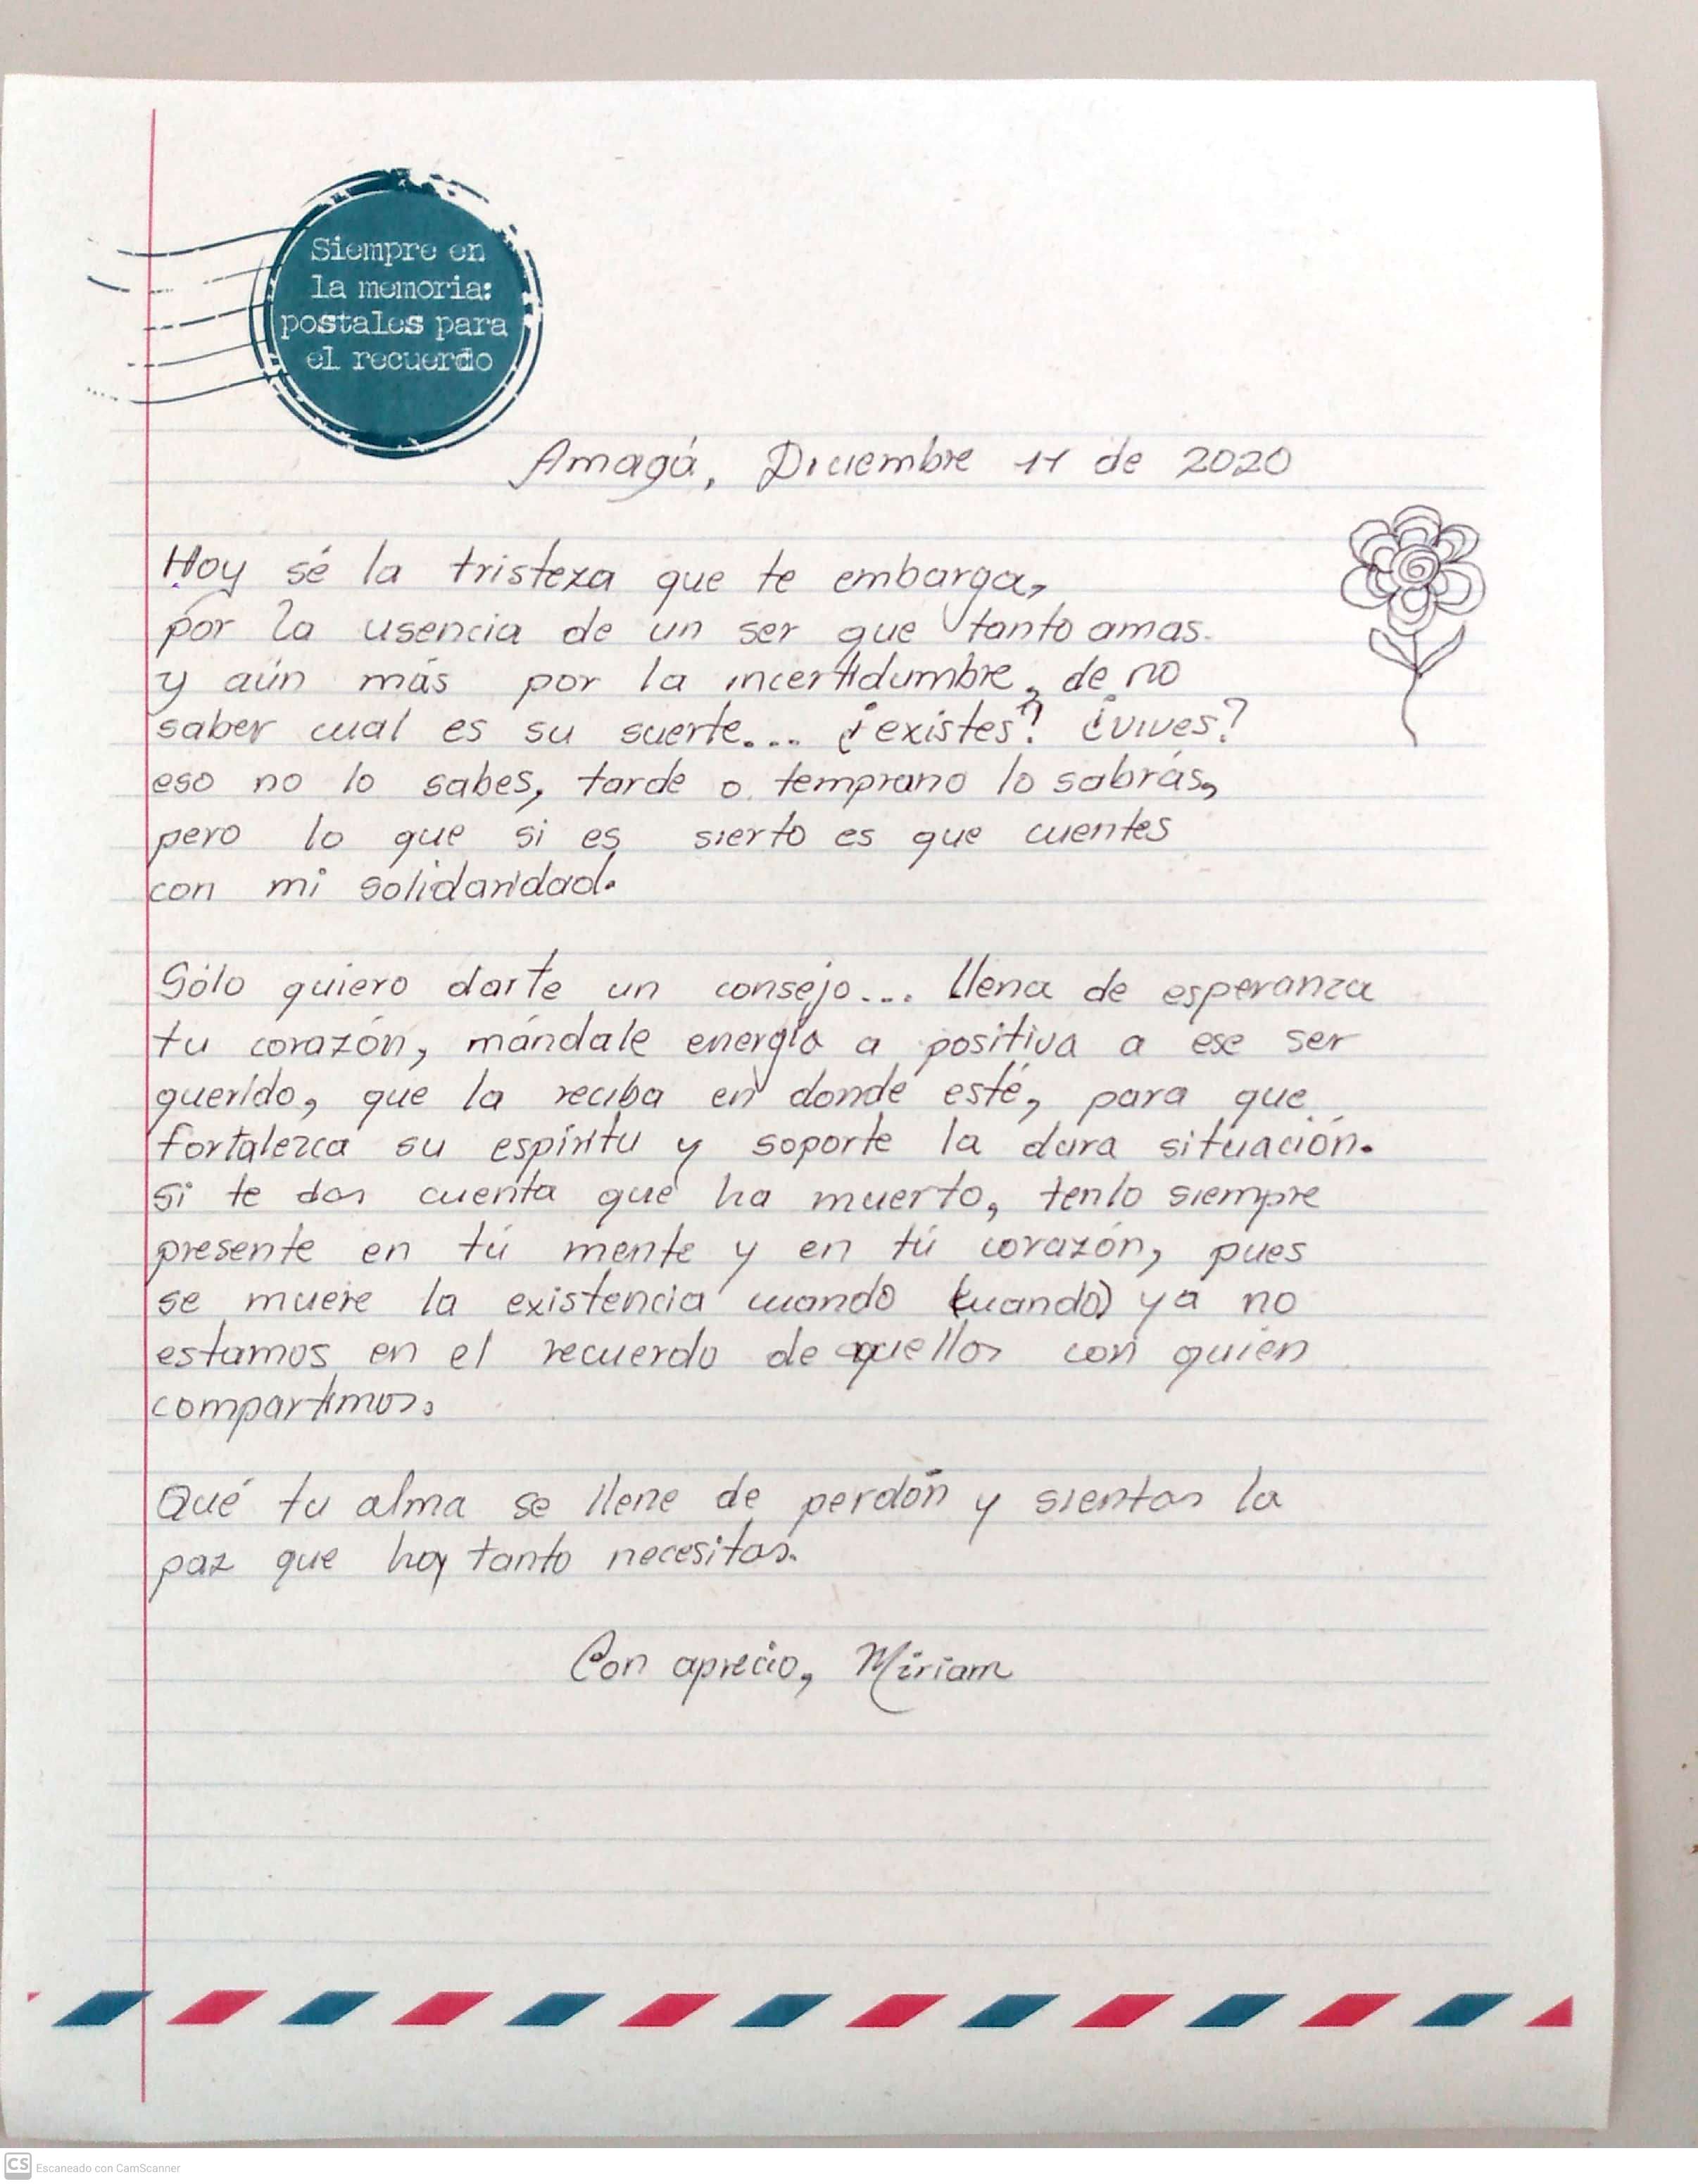 Siempre en
la memoria:
postales para
el recuerdo
Amagá, Diciembre 11 de 2020
Hoy sé la tristeza que te embarga,
por la usencia de un ser que tanto amas.
y aún más por la incertidumbre, de no
saber cual es su suerte... ¿existes? ¿vives?
eso no lo sabes, tarde o temprano lo sabrás,
pero lo que si es sierto es que cuentes
con mi solidaridad.
Sólo quiero darte un consejo... llena de esperanza
tu corazón, mándale energía a positiva a ese ser
querido, que la reciba en donde esté, para que
fortalezca su espíritu y soporte la dura situación.
si te das cuenta que ha muerto, tenlo siempre
presente en tú mente y en tú corazón, pues
se muere la existencia cuando (cuando) ya no
estamos en el recuerdo de aquellos con quien
compartimos.
Qué tu alma se llene de perdón y sientas la
paz que hoy tanto necesitas.
Con aprecio, Miriam
CS Escaneado con CamScanner